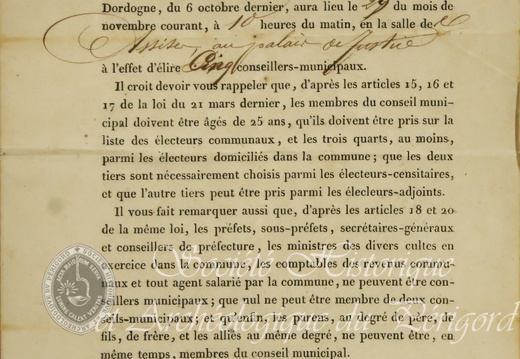 Dordogne, du 6 octobre dernier, aura lieu le 29 du mois de
novembre courant, à 10 heures du matin, en la salle de
Assises au palais de Justice
à l'effet d'élire Cinq conseillers-municipaux.
Il croit devoir vous rappeler que, d'après les articles 15, 16 et
17 de la loi du 21 mars dernier, les membres du conseil muni-
cipal doivent être âgés de 25 ans, qu'ils doivent être pris sur la
liste des électeurs communaux, et les trois quarts, au moins,
parmi les électeurs domiciliés dans la commune; que les deux
tiers sont nécessairement choisis parmi les électeurs-censitaires,
et que l'autre tiers peut être pris parmi les élecleurs-adjoints.
Il vous fait remarquer aussi que, d'après les articles 18 et 20
de la même loi, les préfets, sous-préfets, secrétaires-généraux
et conseillers de préfecture, les ministres des divers cultes en
exercice dans la commune, les comptables des revenus commu-
naux et tout agent salarié par la commune, ne peuvent être con-
seillers municipaux; que nul ne peut être membre de deux con-
seils-municipaux; et qu'enfin, les parens, au degré de père, de
fils, de frère, et les alliés au même degré, ne peuvent être, en
même temps, membres du conseil municipal.
Société Historique
et Archéologique du Périgord